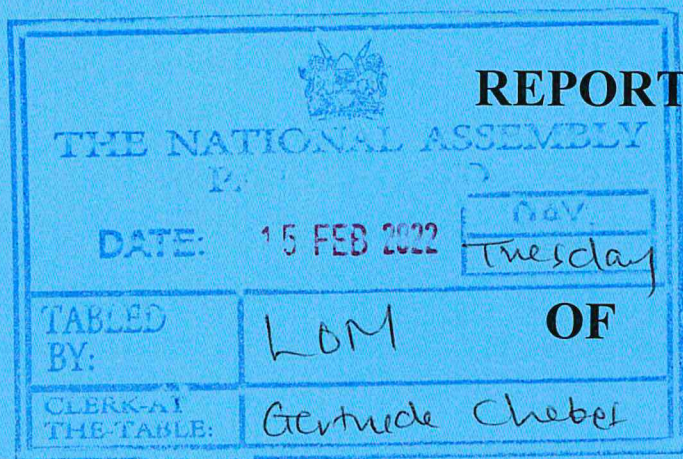 REPORT
THE NATIONAL ASSEMBLY
DATE: 15 FEB 2022
DAY.
Tuesday
TABLED BY: LOM
OF
CLERK-AT THE-TABLE: Gertrude Chebet